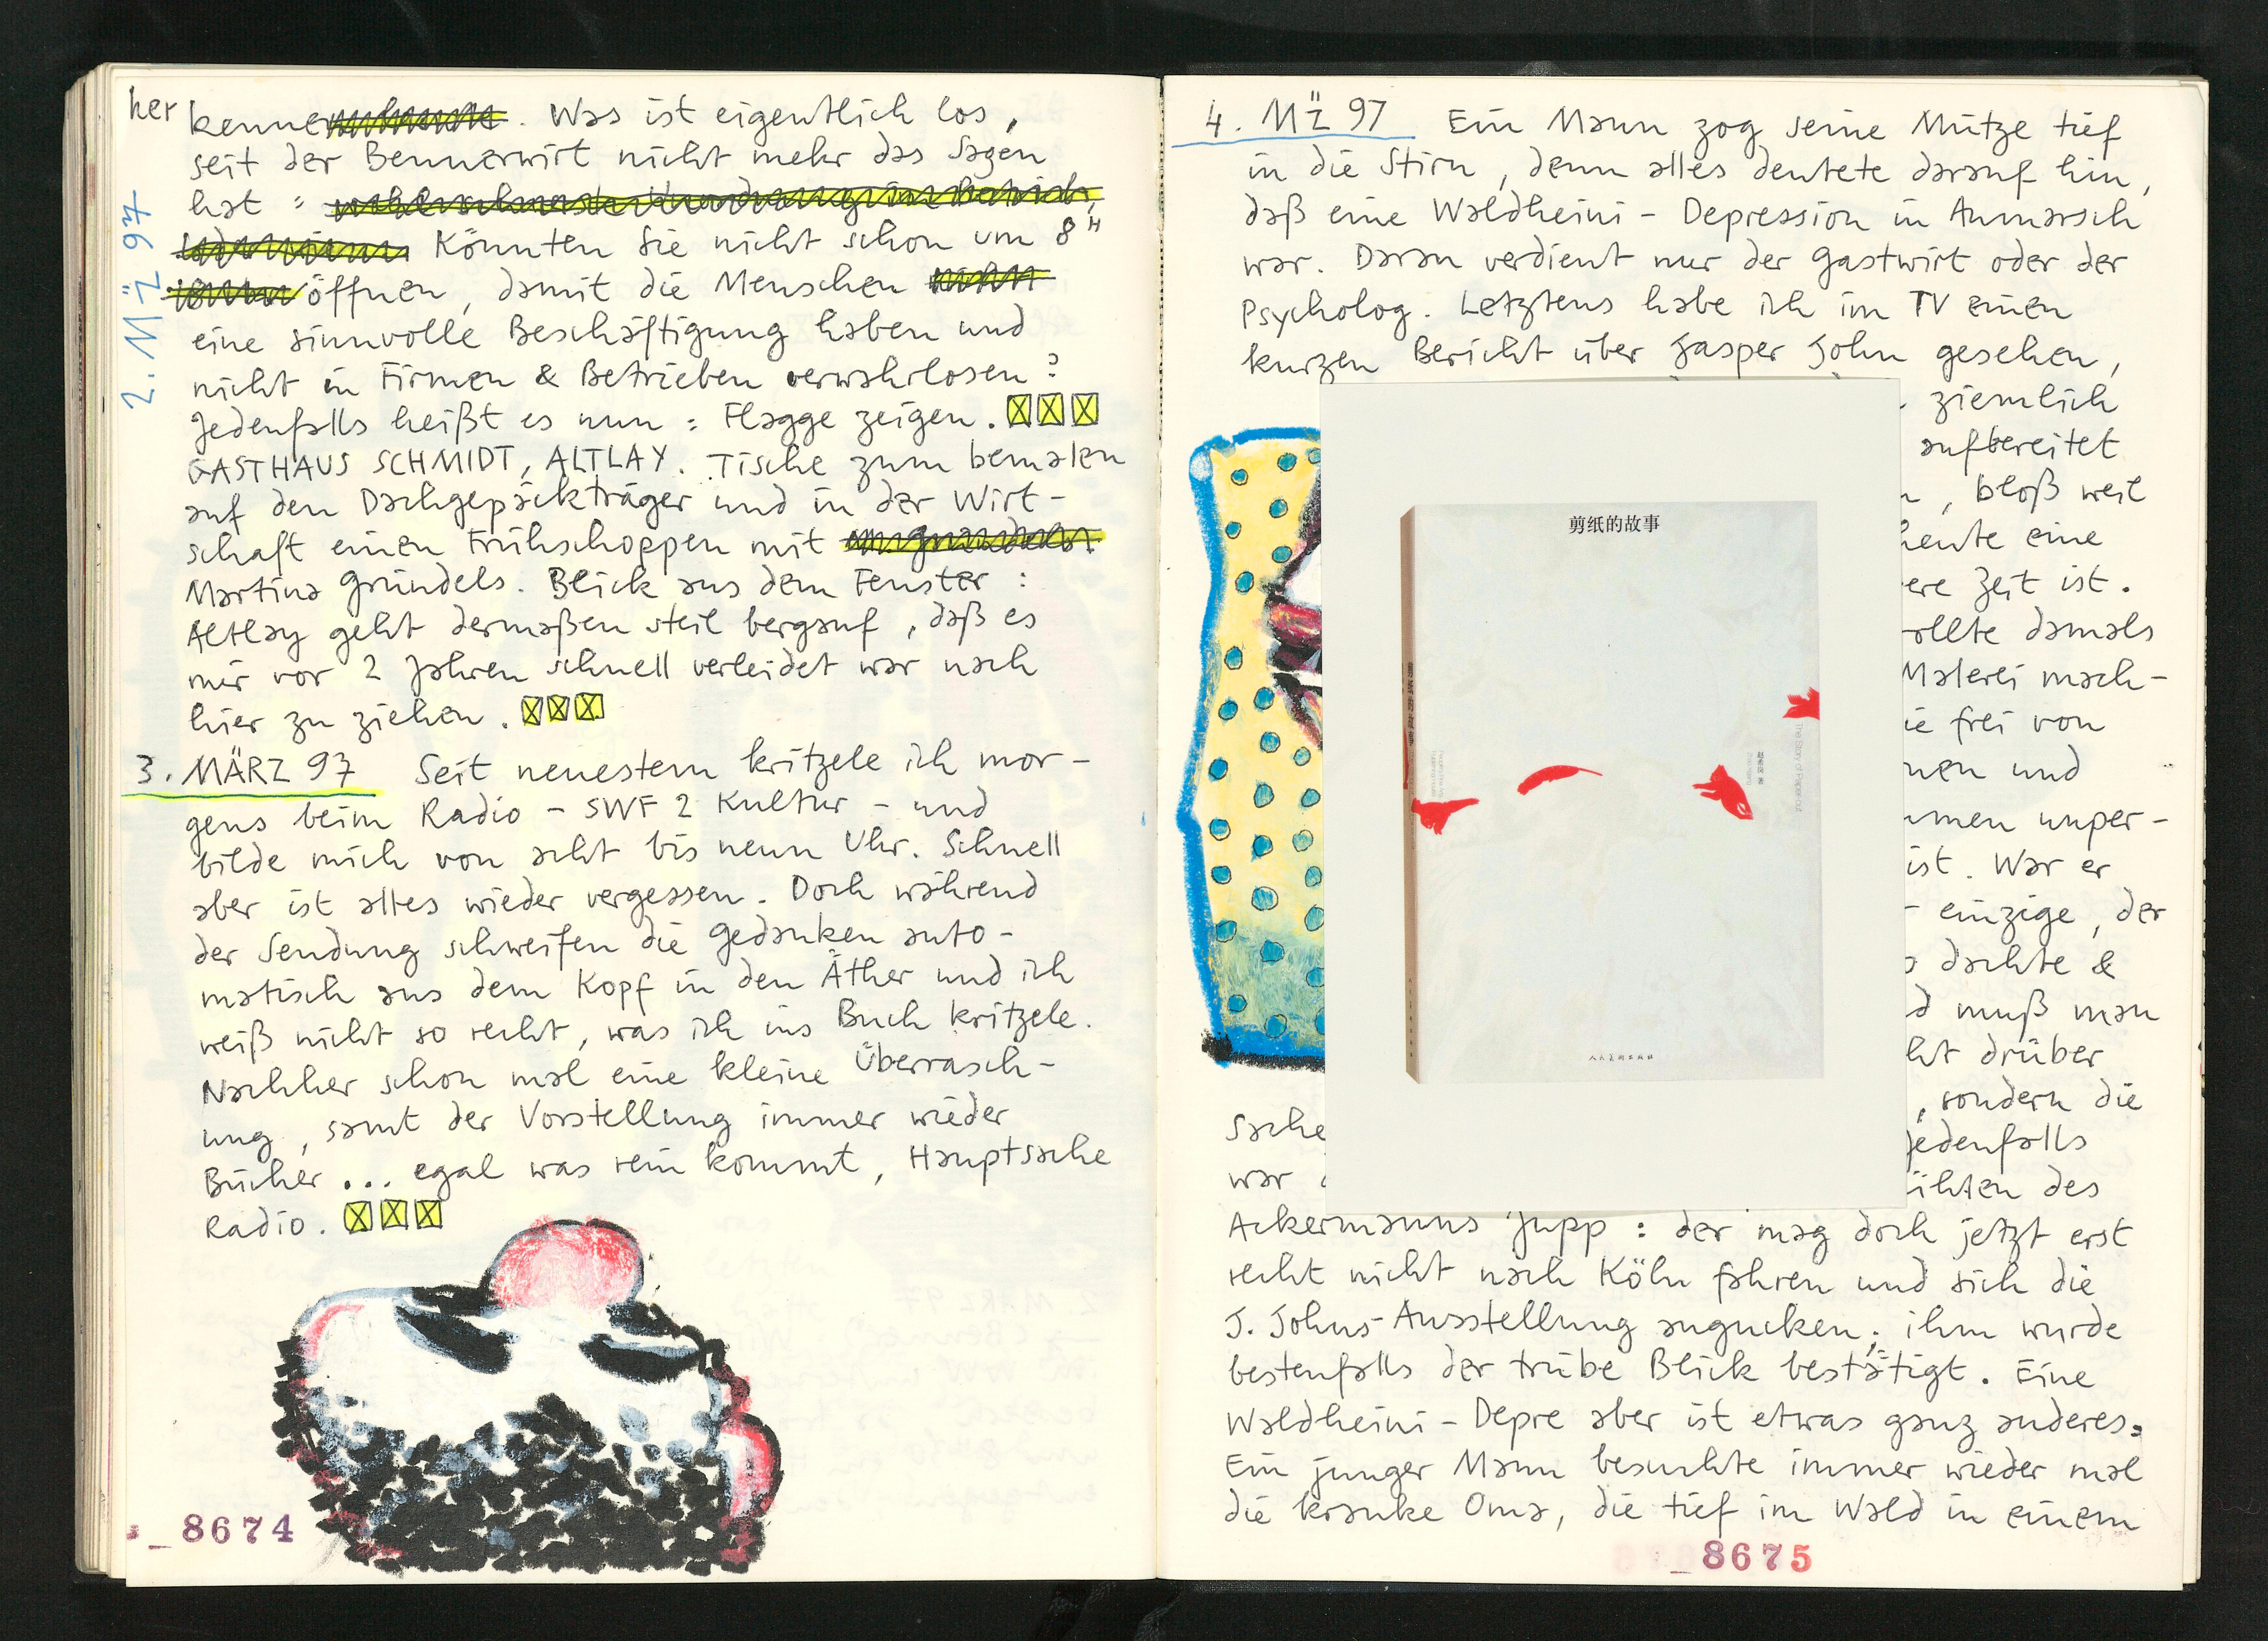 2. MÄZ 97
her kenne. Was ist eigentlich los,
seit der Bennerwirt nicht mehr das Sagen
hat :
Könnten Sie nicht schon um 8 H
öffnen, damit die Menschen
eine sinnvolle Beschäftigung haben und
nicht in Firmen & Betrieben verwahrlosen?
Jedenfalls heißt es nun: Flagge zeigen.
GASTHAUS SCHMIDT, ALTLAY. Tische zum bemalen
auf den Dachgepäckträger und in der Wirt-
schaft einen Frühschoppen mit
Martina Gründels. Blick aus dem Fenster:
Altlay geht dermaßen steil bergauf, daß es
mir vor 2 Jahren schnell verleidet war nach
hier zu ziehen.
3. MÄRZ 97 Seit neuestem kritzele ich mor-
gens beim Radio - SWF 2 Kultur - und
bilde mich von acht bis neun Uhr. Schnell
aber ist alles wieder vergessen. Doch während
der Sendung schweifen die Gedanken auto-
matisch aus dem Kopf in den Äther und ich
weiß nicht so recht, was ich ins Buch kritzele.
Nachher schon mal eine kleine Überrasch-
ung, samt der Vorstellung immer wieder
Bücher... egal was rein kommt, Hauptsache
Radio.
_8674
4. MÄZ 97 Ein Mann zog seine Mütze tief
in die Stirn, denn alles deutete darauf hin,
daß eine Waldheini-Depression in Anmarsch
war. Daran verdient nur der Gastwirt oder der
Psycholog. Letztens habe ich im TV einen
kurzen Bericht über Jasper John gesehen,
ziemlich
aufbereitet
, bloß weil
heute eine
ere Zeit ist.
ollte damals
Malerei mach-
ie frei von
nen und
mmen unper-
ist. War er
einzige, der
dachte &
d muß man
ht drüber
, sondern die
Sache
jedenfalls
war
ihten des
Ackermanns Jupp: der mag doch jetzt erst
recht nicht nach Köln fahren und sich die
J. Johns-Ausstellung angucken; ihm wurde
bestenfalls der trübe Blick bestätigt. Eine
Waldheini-Depre aber ist etwas ganz anderes:
Ein junger Mann besuchte immer wieder mal
die kranke Oma, die tief im Wald in einem
_8675
剪纸的故事
The Story of Paper-cut
人民美术出版社